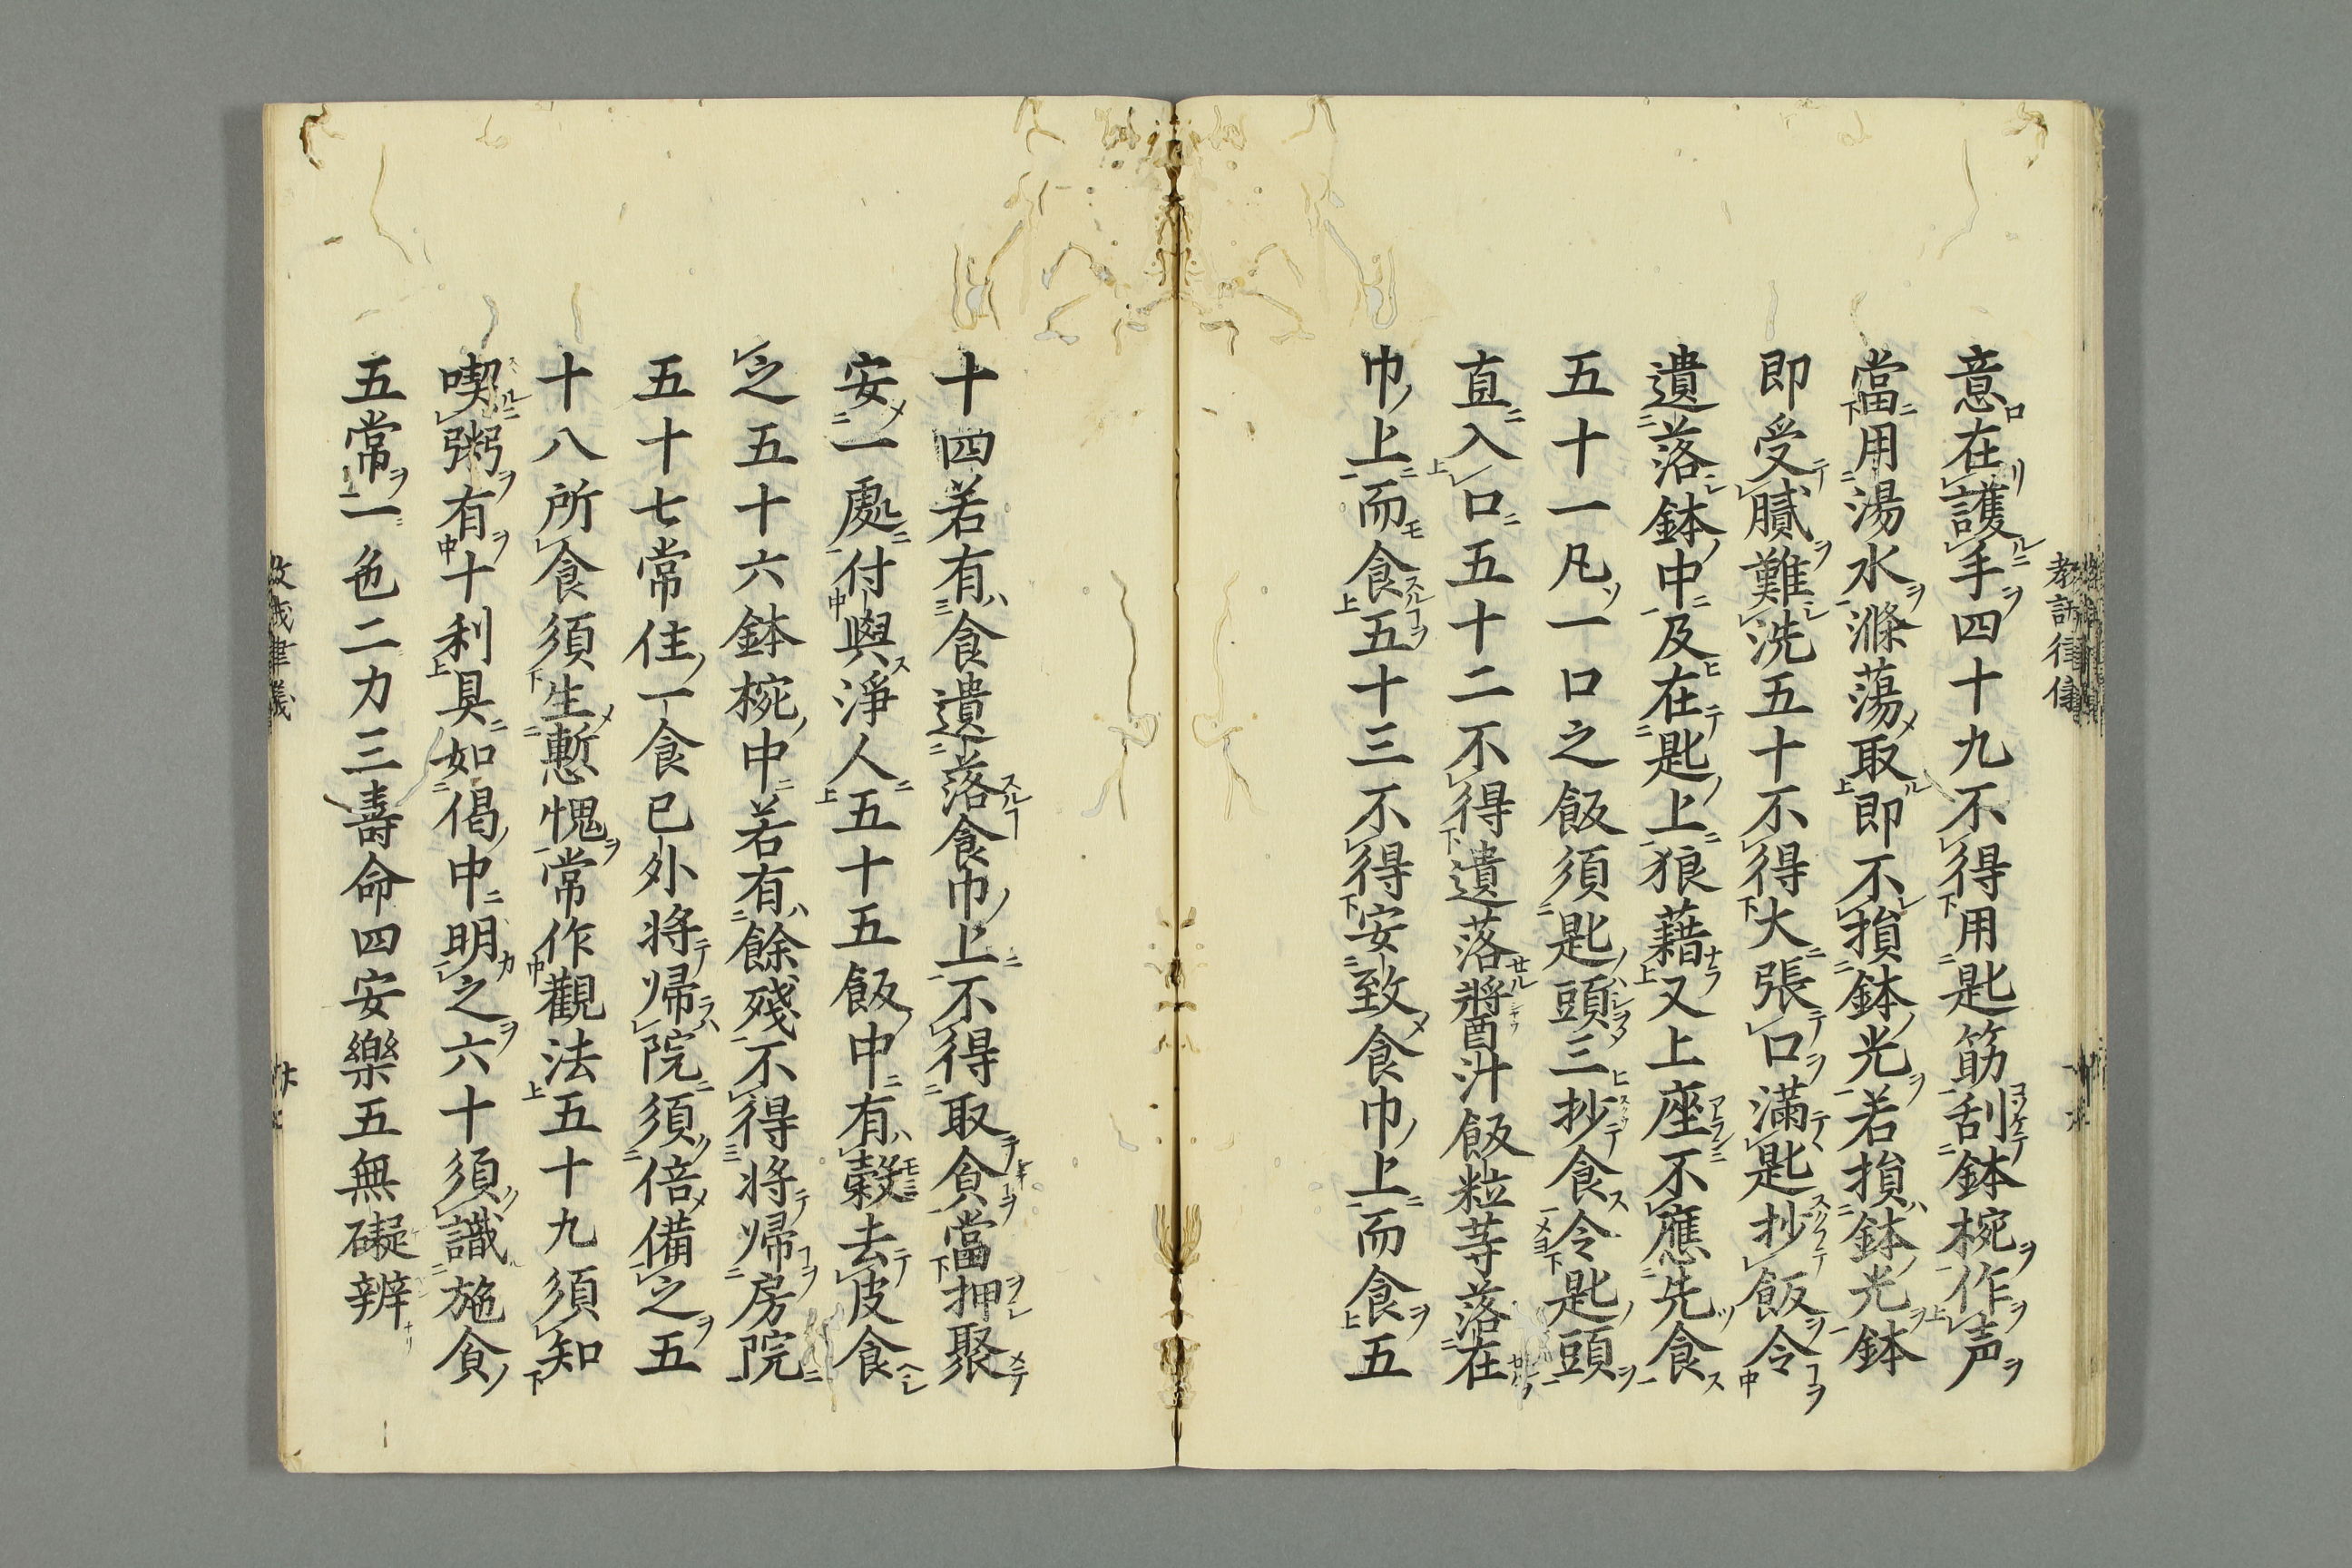 意在護手四十九不得用匙筯刮鉢椀作声
當用湯水滌蕩取即不損鉢光若損鉢光鉢
即受膩難洗五十不得大張口滿匙抄飯令
遺落鉢中及在匙上狼藉又上座不應先食
五十一凡一口之飯須匙頭三抄食令匙頭
直入口五十二不得遺落醤汁飯粒䓁落在
巾上而食五十三不得安致食巾上而食五
十四若有食遺落食巾上不得取食當押聚
安一處付與淨人五十五飯中有穀去皮食
之五十六鉢椀中若有餘殘不得将帰房院
五十七常住一食已外将帰院須倍備之五
十八所食須生慙愧常作觀法五十九須知
喫粥有十利具如偈中明之六十須識施食
五常一色二力三壽命四安樂五無礙辨